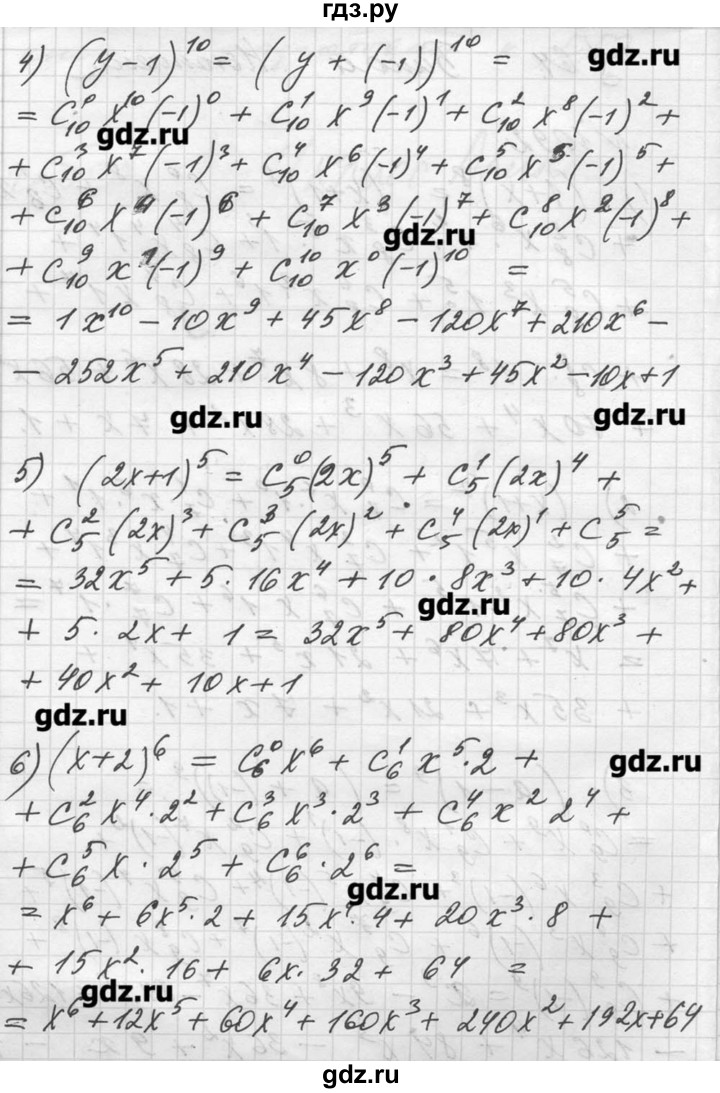 гдз.ру
4) (y-1)^10 = (y + (-1))^10 =
gdz.ru
= C_10^0 x^10 (-1)^0 + C_10^1 x^9 (-1)^1 + C_10^2 x^8 (-1)^2 +
gdz.ru
+ C_10^3 x^7 (-1)^3 + C_10^4 x^6 (-1)^4 + C_10^5 x^5 (-1)^5 +
+ C_10^6 x^4 (-1)^6 + C_10^7 x^3 (-1)^7 + C_10^8 x^2 (-1)^8 +
gdz.ru
+ C_10^9 x^1 (-1)^9 + C_10^10 x^0 (-1)^10 =
= 1x^10 - 10x^9 + 45x^8 - 120x^7 + 210x^6 -
- 252x^5 + 210x^4 - 120x^3 + 45x^2 - 10x + 1
gdz.ru gdz.ru
5) (2x+1)^5 = C_5^0 (2x)^5 + C_5^1 (2x)^4 +
+ C_5^2 (2x)^3 + C_5^3 (2x)^2 + C_5^4 (2x)^1 + C_5^5 =
= 32x^5 + 5·16x^4 + 10·8x^3 + 10·4x^2 +
gdz.ru
+ 5·2x + 1 = 32x^5 + 80x^4 + 80x^3 +
+ 40x^2 + 10x + 1
gdz.ru
6) (x+2)^6 = C_6^0 x^6 + C_6^1 x^5·2 +
gdz.ru
+ C_6^2 x^4·2^2 + C_6^3 x^3·2^3 + C_6^4 x^2 2^4 +
+ C_6^5 x·2^5 + C_6^6·2^6 =
gdz.ru
= x^6 + 6x^5·2 + 15x^4·4 + 20x^3·8 +
+ 15x^2·16 + 6x·32 + 64 =
gdz.ru
= x^6 + 12x^5 + 60x^4 + 160x^3 + 240x^2 + 192x + 64
gdz.ru